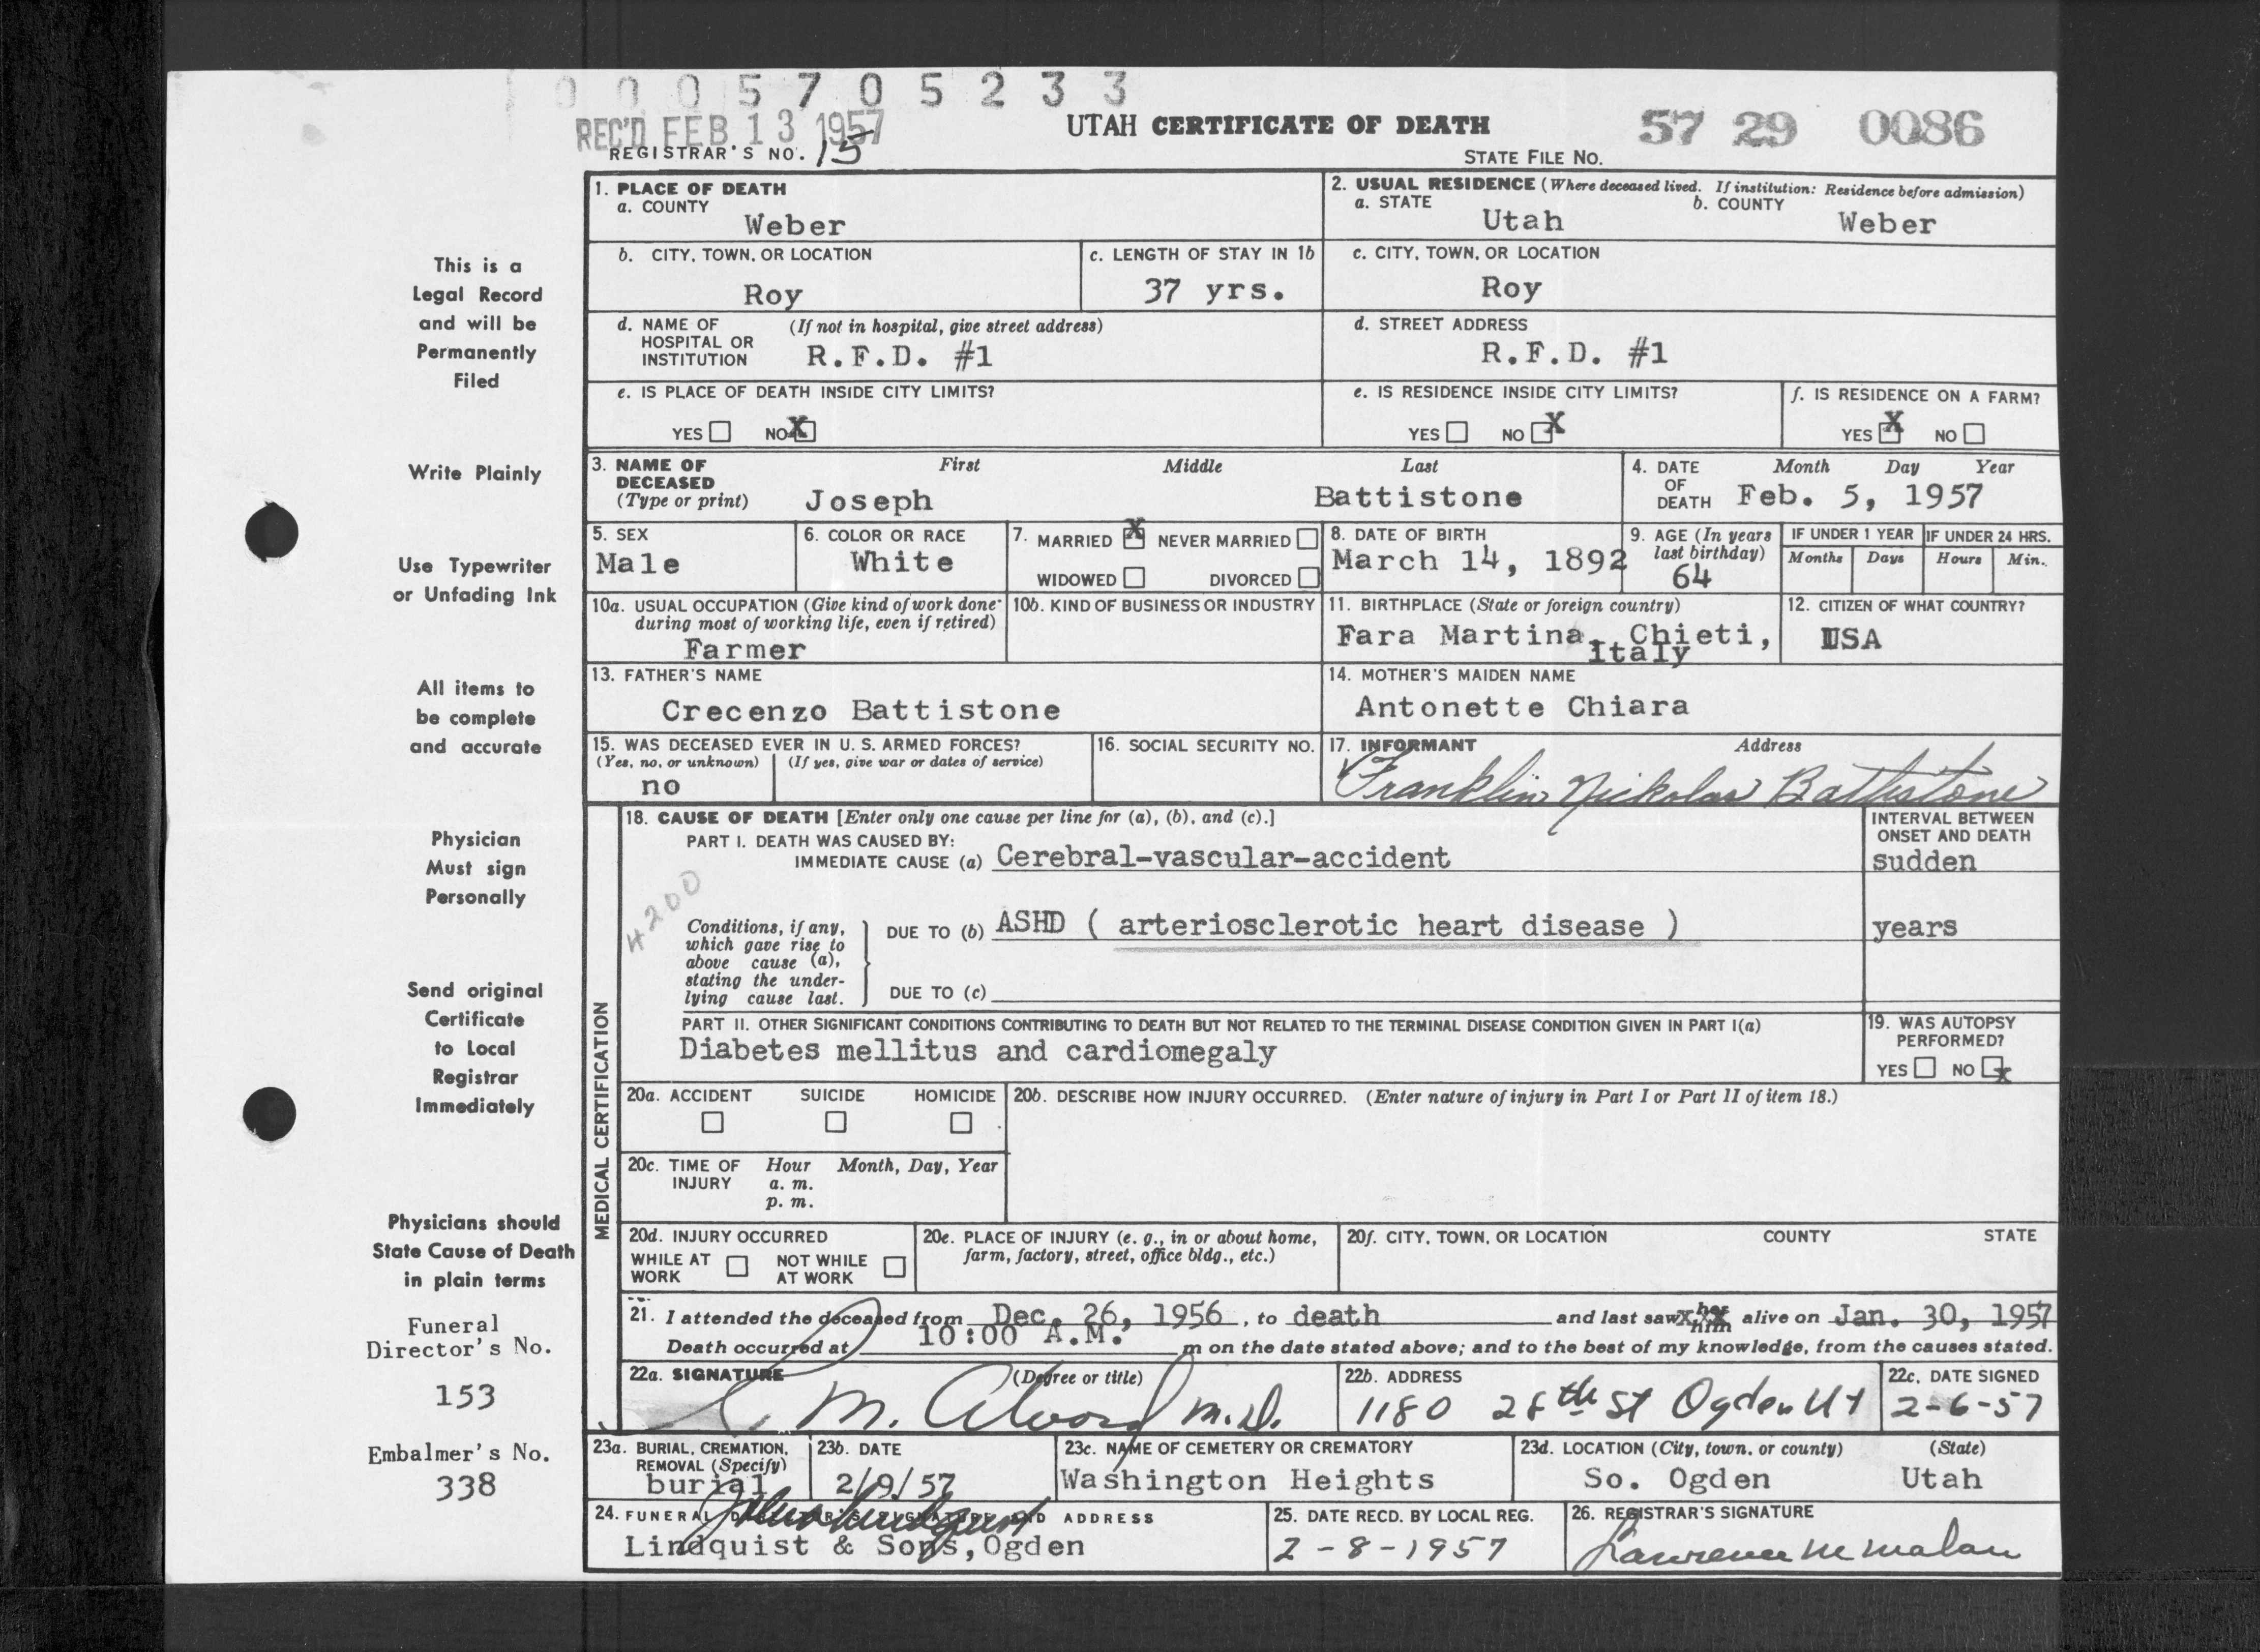 0005705233
REC'D FEB 13 1957
UTAH CERTIFICATE OF DEATH
57 29 0086
REGISTRAR'S NO. 15
STATE FILE NO.
This is a
Legal Record
and will be
Permanently
Filed
Write Plainly
Use Typewriter
or Unfading Ink
All items to
be complete
and accurate
Physician
Must sign
Personally
Send original
Certificate
to Local
Registrar
Immediately
Physicians should
State Cause of Death
in plain terms
Funeral
Director's No.
153
Embalmer's No.
338
1. PLACE OF DEATH
a. COUNTY
Weber
2. USUAL RESIDENCE (Where deceased lived. If institution: Residence before admission)
a. STATE
Utah
b. COUNTY
Weber
b. CITY, TOWN, OR LOCATION
Roy
c. LENGTH OF STAY IN 1b
37 yrs.
c. CITY, TOWN, OR LOCATION
Roy
d. NAME OF HOSPITAL OR INSTITUTION
(If not in hospital, give street address)
R.F.D. #1
d. STREET ADDRESS
R.F.D. #1
e. IS PLACE OF DEATH INSIDE CITY LIMITS?
YES NO X
e. IS RESIDENCE INSIDE CITY LIMITS?
YES NO X
f. IS RESIDENCE ON A FARM?
YES X NO
3. NAME OF DECEASED
(Type or print)
First Middle Last
Joseph Battistone
4. DATE OF DEATH
Month Day Year
Feb. 5, 1957
5. SEX
Male
6. COLOR OR RACE
White
7. MARRIED X NEVER MARRIED
WIDOWED DIVORCED
8. DATE OF BIRTH
March 14, 1892
9. AGE (In years last birthday)
64
IF UNDER 1 YEAR
Months Days
IF UNDER 24 HRS.
Hours Min.
10a. USUAL OCCUPATION (Give kind of work done during most of working life, even if retired)
Farmer
10b. KIND OF BUSINESS OR INDUSTRY
11. BIRTHPLACE (State or foreign country)
Fara Martina, Chieti,
Italy
12. CITIZEN OF WHAT COUNTRY?
USA
13. FATHER'S NAME
Crecenzo Battistone
14. MOTHER'S MAIDEN NAME
Antonette Chiara
15. WAS DECEASED EVER IN U. S. ARMED FORCES?
(Yes, no, or unknown) (If yes, give war or dates of service)
no
16. SOCIAL SECURITY NO.
17. INFORMANT Address
Franklin Nickolas Battistone
MEDICAL CERTIFICATION
18. CAUSE OF DEATH [Enter only one cause per line for (a), (b), and (c).]
INTERVAL BETWEEN ONSET AND DEATH
PART I. DEATH WAS CAUSED BY:
IMMEDIATE CAUSE (a) Cerebral-vascular-accident
sudden
4200
Conditions, if any,
which gave rise to
above cause (a),
stating the under-
lying cause last.
DUE TO (b) ASHD ( arteriosclerotic heart disease )
years
DUE TO (c)
PART II. OTHER SIGNIFICANT CONDITIONS CONTRIBUTING TO DEATH BUT NOT RELATED TO THE TERMINAL DISEASE CONDITION GIVEN IN PART I(a)
Diabetes mellitus and cardiomegaly
19. WAS AUTOPSY PERFORMED?
YES NO x
20a. ACCIDENT SUICIDE HOMICIDE
20b. DESCRIBE HOW INJURY OCCURRED. (Enter nature of injury in Part I or Part II of item 18.)
20c. TIME OF INJURY
Hour Month, Day, Year
a. m.
p. m.
20d. INJURY OCCURRED
WHILE AT WORK NOT WHILE AT WORK
20e. PLACE OF INJURY (e. g., in or about home, farm, factory, street, office bldg., etc.)
20f. CITY, TOWN, OR LOCATION COUNTY STATE
21. I attended the deceased from Dec. 26, 1956, to death and last saw her him alive on Jan. 30, 1957
Death occurred at 10:00 A.M. m on the date stated above; and to the best of my knowledge, from the causes stated.
22a. SIGNATURE (Degree or title)
M. Alvord M.D.
22b. ADDRESS
1180 28th St Ogden Ut
22c. DATE SIGNED
2-6-57
23a. BURIAL, CREMATION, REMOVAL (Specify)
burial
23b. DATE
2/9/57
23c. NAME OF CEMETERY OR CREMATORY
Washington Heights
23d. LOCATION (City, town, or county) (State)
So. Ogden Utah
24. FUNERAL DIRECTOR'S SIGNATURE AND ADDRESS
Lindquist & Sons, Ogden
25. DATE RECD. BY LOCAL REG.
2-8-1957
26. REGISTRAR'S SIGNATURE
Lawrence M Malan